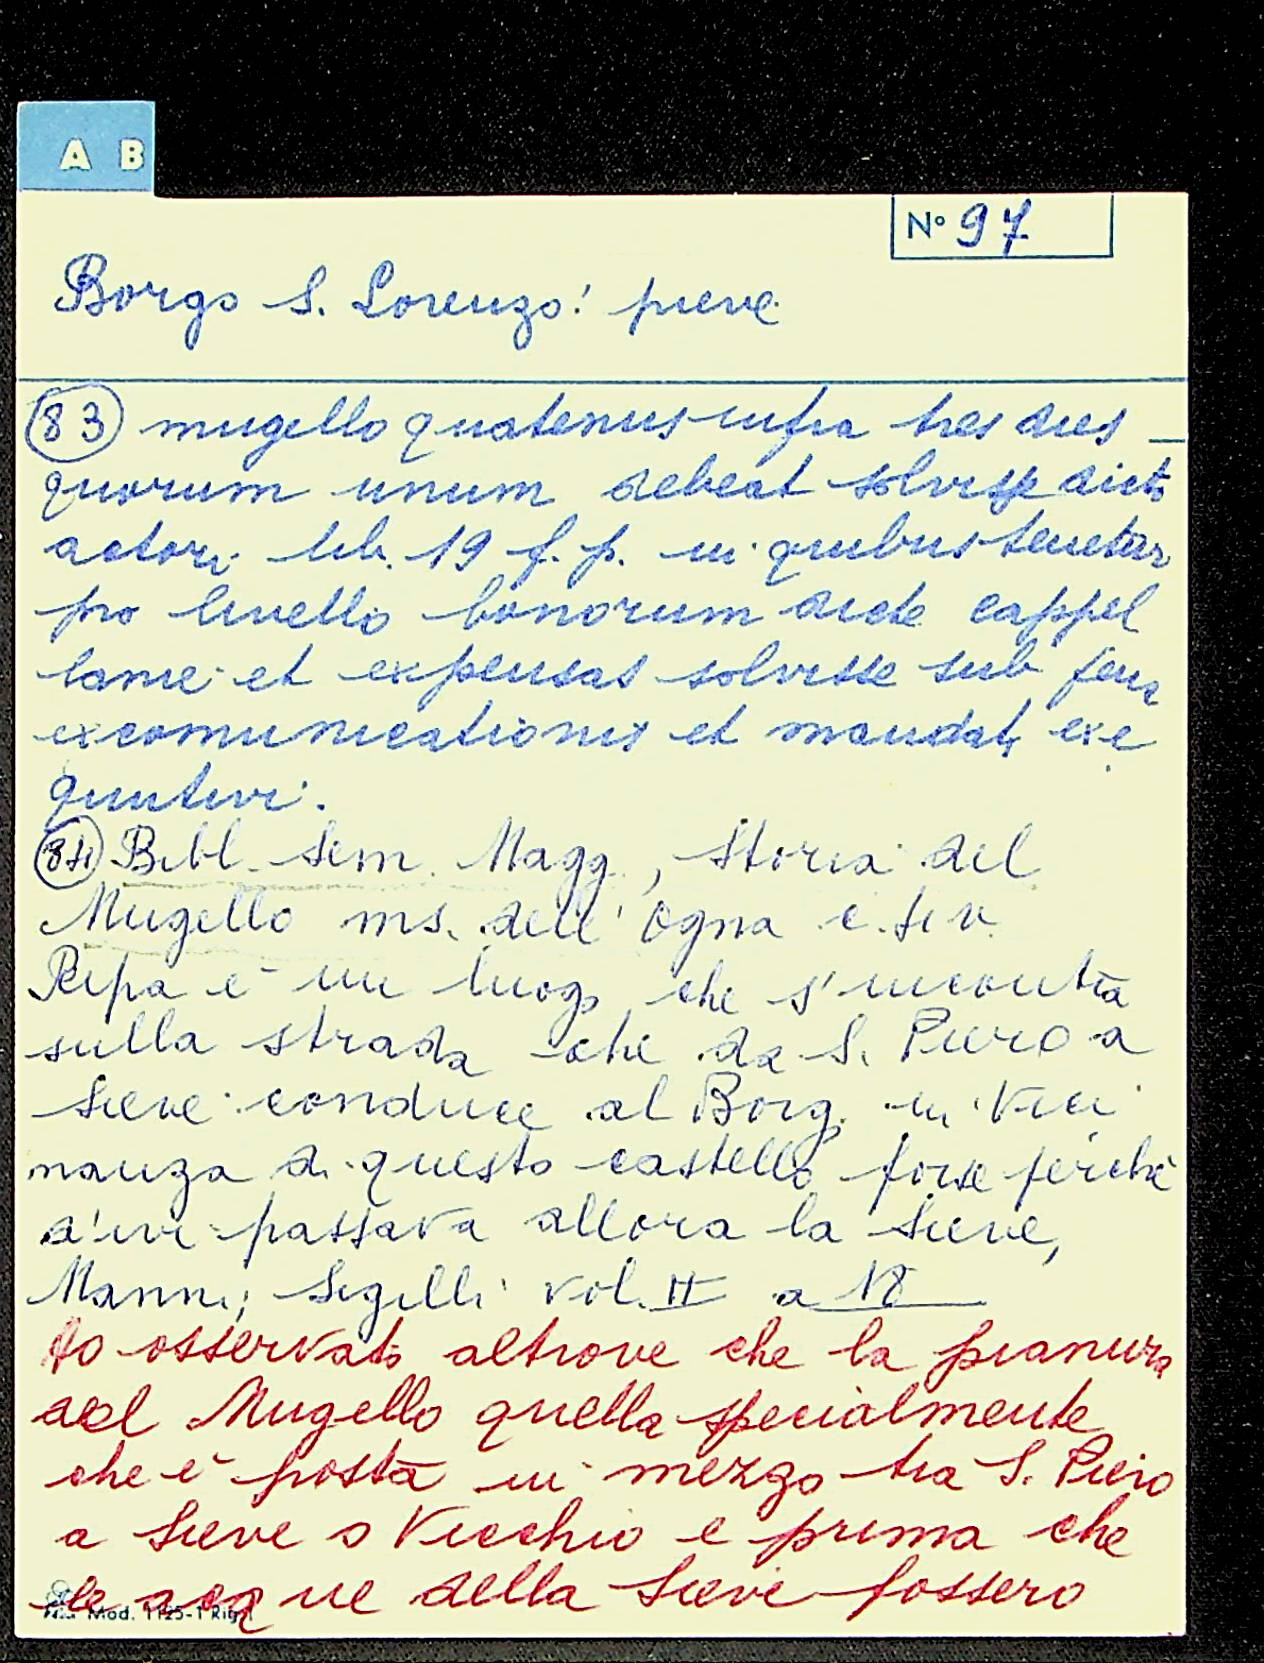 A B
N° 97
Borgo S. Lorenzo: pieve
83 mugello quatenus infra tres dies
quorum unum debeat solvisse dicto
actori lib. 19 f. p. in quibus tenetur
pro livello bonorum dicte cappel
lanie et expensas solvisse sub pena
excomunicationis et mandati exe
quutivi.
84 Bibl. Sem. Magg., Storia del
Mugello ms. dell'Ogna
Ripa è un luogo che s'incontra
sulla strada che da S. Piero a
Sieve conduce al Borgo in vici
nanza di questo castello forse perchè
d'ivi passava allora la Sieve,
Manni, Sigilli vol. II a 18
Ho osservato altrove che la pianura
del Mugello quella specialmente
che è posta in mezzo tra S. Piero
a Sieve o Vicchio e prima che
le acque della Sieve fossero
Mod. 1125-1 Rigd